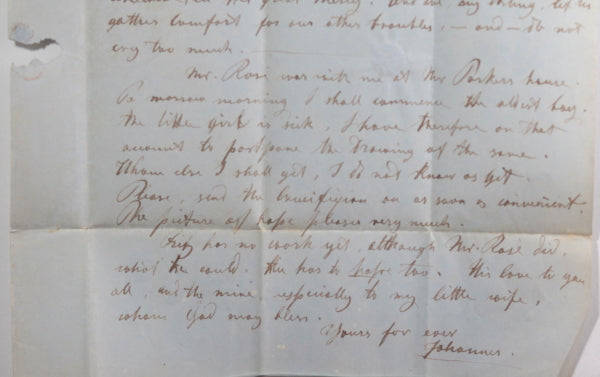 great mercy. And we, my darling, let us
gather comfort for our other troubles, — and — do not
cry too much.
Mr. Rosé was with me at Mr Parkers house.
To morrow morning I shall commence the oldest boy.
the little girl is sick, I have therefore on that
account to postpone the drawing of the same.
Whom else I shall get, I do not know as yet.
Please, send the Crucifigion on as soon as convenient.
The picture of hope pleases very much.
Fritz has no work yet, although Mr. Rosé did,
what he could. He has to hope too. His love to you
all, and the mine, especially to my little wife,
whom God may bless.
Yours for ever
Johannes.